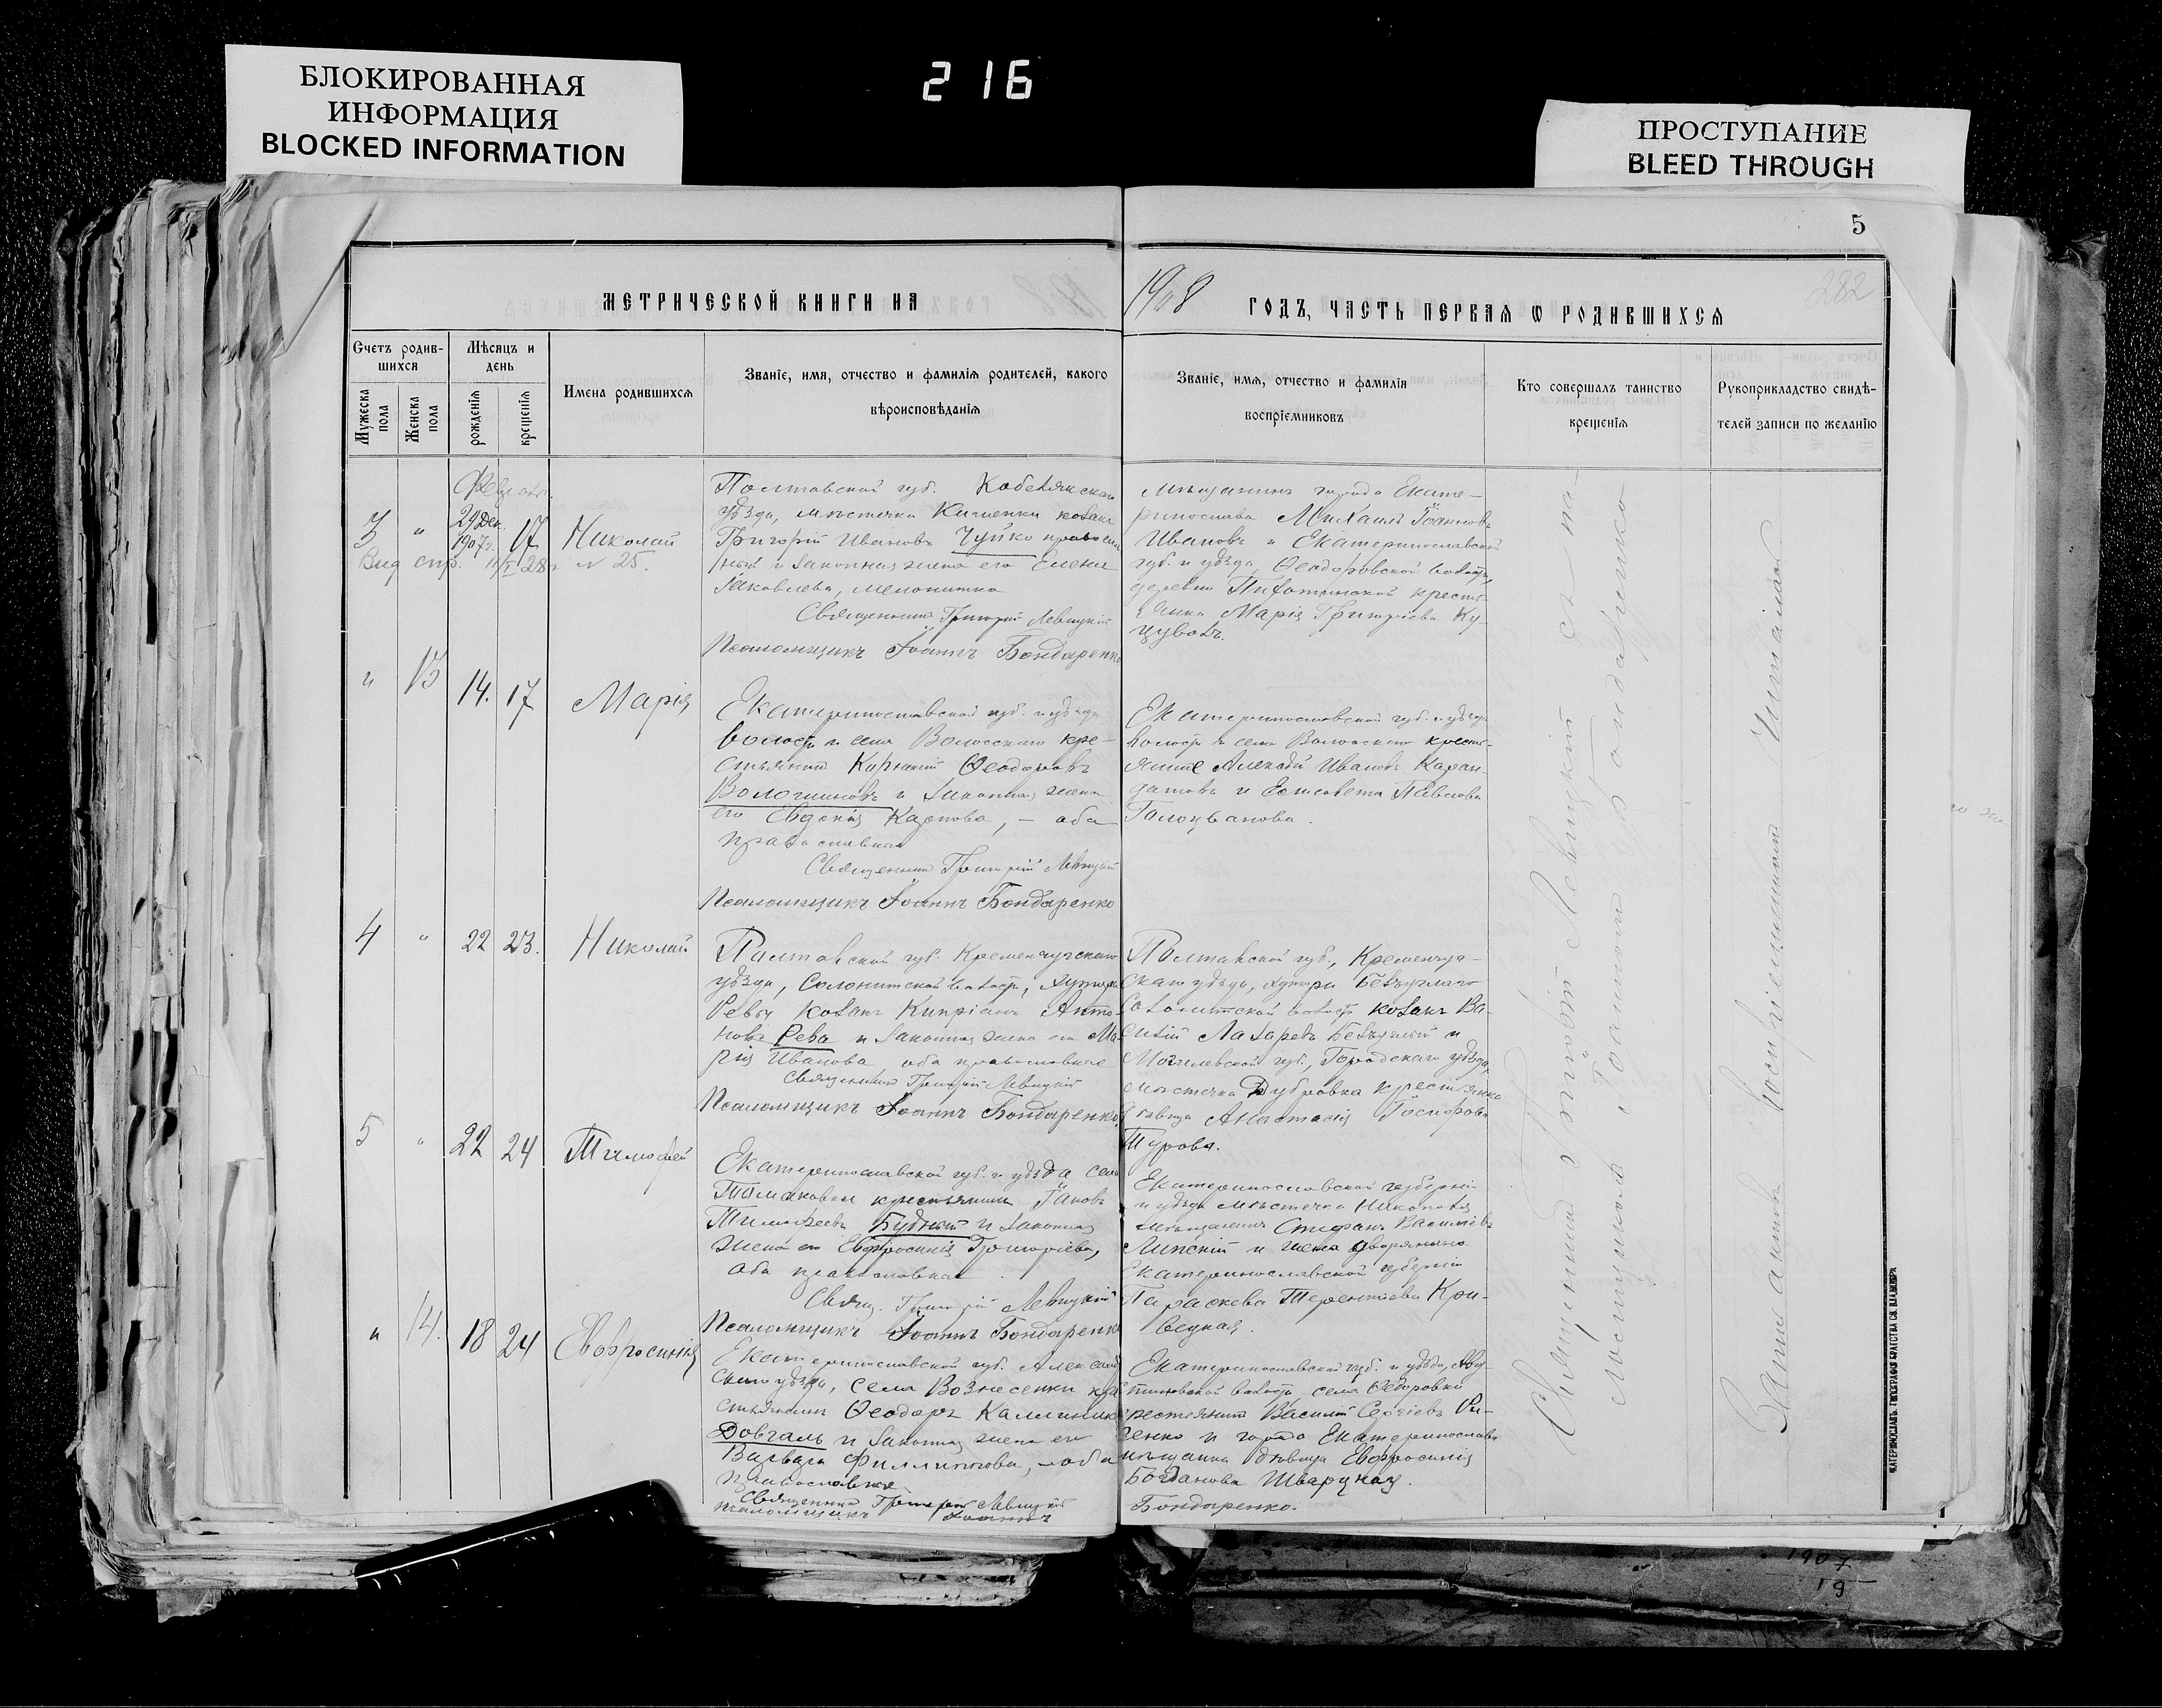 БЛОКИРОВАННАЯ
ИНФОРМАЦИЯ
BLOCKED INFORMATION
216
ПРОСТУПАНИЕ
BLEED THROUGH
5
282
МЕТРИЧЕСКОЙ КНИГИ НА
1908 ГОДЪ, ЧАСТЬ ПЕРВАЯ Ѡ РОДИВШИХСЯ
Счетъ родив-
шихся
Мужеска пола
Женска пола
Мѣсяцъ и
день
рожденія
крещенія
Имена родившихся
Званіе, имя, отчество и фамилія родителей, какого
вѣроисповѣданія
Званіе, имя, отчество и фамилія
воспріемниковъ
Кто совершалъ таинство
крещенія
Рукоприкладство свидѣ-
телей записи по желанію
3 " 29 Дек. 1907 г. 17 Николай
Вид спр. 28 г. N 25.
Полтавской губ. Кобелякскаго
уѣзда, мѣстечка Кишенки козакъ
Григорій Ивановъ Чуйко православ
ный и законная жена его Елена
Іаковлева,
Священникъ Григорій Левицкій
Псаломщикъ Іоаннъ Бондаренко
Мѣщанинъ города Екате-
ринослава Михаилъ Іоанновъ
Ивановъ и Екатеринославской
губ. и уѣзда, Ѳеодоровской волости,
деревни крестья-
янка Марія Григоріева Ку-
цуволъ.
" 13 14. 17 Марія
Екатеринославской губ. и уѣзда
волости и села Волосскаго кре-
стьянинъ Корнилій Ѳеодоровъ
Волошиновъ и законная жена
его Евдокія Карпова, – оба
православные
Священникъ Григорій Левицкій
Псаломщикъ Іоаннъ Бондаренко
Екатеринославской губ. и уѣзда
волости и села Волосскаго крестья-
яне Алексѣй Ивановъ Каран-
датовъ и Елисавета Павлова
Голоцванова.
4 " 22 23. Николай
Полтавской губ. Кременчугскаго
уѣзда, Солонитской волости, хутора
Ревы козакъ Кипріанъ Анто-
новъ Рева и законная жена его Ма-
рія Иванова, оба православные
Священникъ Григорій Левицкій
Псаломщикъ Іоаннъ Бондаренко.
Полтавской губ., Кременчуг-
скаго уѣзда, хутора Безуглаго
Солонитской волости козакъ Ва-
силій Лазаревъ Безуглый и
Могилевской губ., уѣзда,
мѣстечка Дубровка крестьянка
дѣвица Анастасія
Турова.
5 " 22 24 Тимофей
Екатеринославской губ. и уѣзда села
Томаковки крестьянинъ Іаковъ
Тимофеевъ Будный и законная
жена его Евфросинія Григоріева,
оба православные.
Свящ. Григорій Левицкій
Псаломщикъ Іоаннъ Бондаренко
Екатеринославской губерніи
и уѣзда мѣстечка Никополя
мѣщанинъ Стефанъ Василіевъ
Липскій и жена дворянина
Екатеринославской губерніи
Параскева Терентіева Кри-
вецкая.
" 14. 18 24 Евфросинія
Екатеринославской губ. Александ
скаго уѣзда, села Вознесенки кре
стьянинъ Ѳеодоръ Каллиник
Довгаль и законная жена его
Варвара Филлиппова, – оба
православные
Священникъ Григорій Левицкій
псаломщикъ Іоаннъ
Екатеринославской губ. и уѣзда, Авгу-
стиновской волости, села Ѳедоровки
крестьянинъ Василій Сергіевъ
и города Екатеринослава
мѣщанка дѣвица Евфросинія
Богданова Шварцкая.
Бондаренко.
Священникъ Григорій Левицкій съ пса-
ломщикомъ Іоанномъ Бондаренко
Записанныхъ воспріемниками читалъ
ЕКАТЕРИНОСЛАВЪ. ТИПОГРАФІЯ БРАТСТВА СВ. ВЛАДИМІРА
1907
19